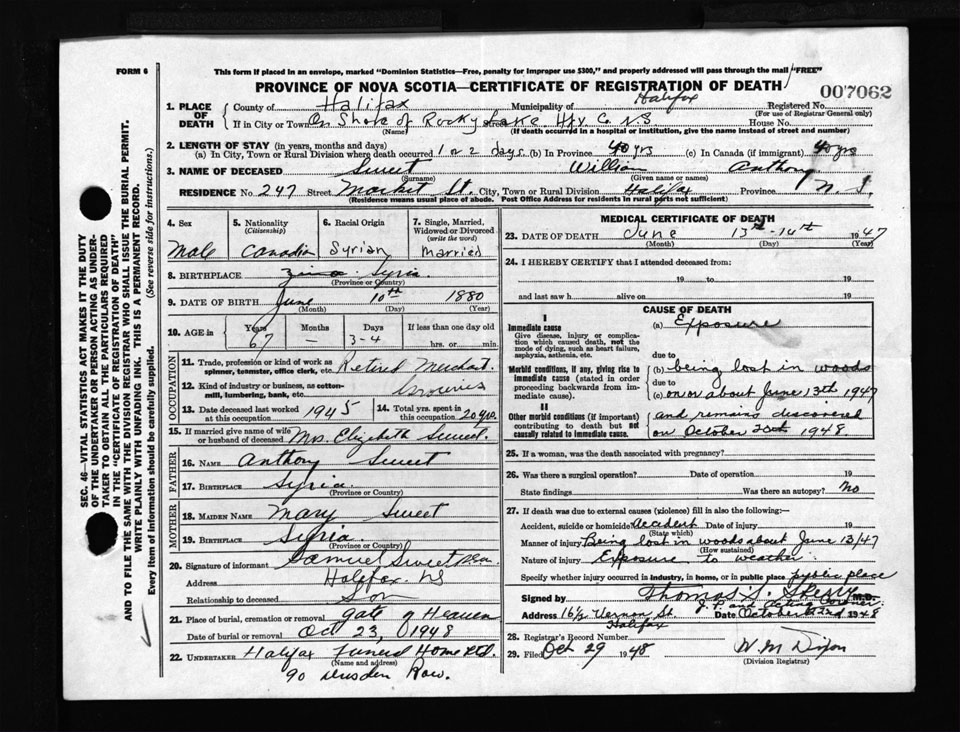 FORM 6
This form if placed in an envelope, marked "Dominion Statistics—Free, penalty for improper use $300," and properly addressed will pass through the mail "FREE"
PROVINCE OF NOVA SCOTIA—CERTIFICATE OF REGISTRATION OF DEATH
007062
1. PLACE OF DEATH
County of Halifax Municipality of Halifax Registered No.
(For use of Registrar General only)
If in City or Town On Shore of Rocky Lake Hfx. Co. N.S. House No.
(Name) (If death occurred in a hospital or institution, give the name instead of street and number)
2. LENGTH OF STAY (in years, months and days)
(a) In City, Town or Rural Division where death occurred 1 or 2 days (b) In Province 40 yrs (c) In Canada (if immigrant) 40 yrs
3. NAME OF DECEASED Sweet William Anthony
(Surname) (Given name or names)
RESIDENCE No. 247 Street Market St. City, Town or Rural Division Halifax Province N. S.
(Residence means usual place of abode. Post Office Address for residents in rural parts not sufficient)
4. Sex
Male
5. Nationality
(Citizenship)
Canadian
6. Racial Origin
Syrian
7. Single, Married, Widowed or Divorced
(write the word)
Married
8. BIRTHPLACE Syria
(Province or Country)
9. DATE OF BIRTH June 10th 1880
(Month) (Day) (Year)
10. AGE in Years Months Days If less than one day old
67 — 3-4 hrs. or min.
OCCUPATION
11. Trade, profession or kind of work as spinner, teamster, office clerk, etc. Retired Merchant
12. Kind of industry or business, as cotton-mill, lumbering, bank, etc. Groceries
13. Date deceased last worked at this occupation 1945
14. Total yrs. spent in this occupation 20 yrs.
15. If married give name of wife or husband of deceased Mrs. Elizabeth Sweet.
FATHER
16. NAME Anthony Sweet
17. BIRTHPLACE Syria
(Province or Country)
MOTHER
18. MAIDEN NAME Mary Sweet
19. BIRTHPLACE Syria.
(Province or Country)
20. Signature of informant Samuel Sweet
Address Halifax. NS
Relationship to deceased Son
21. Place of burial, cremation or removal Gate of Heaven
Date of burial or removal Oct 23, 1948
22. UNDERTAKER Halifax Funeral Home Ltd.
(Name and address)
90 Dresden Row.
MEDICAL CERTIFICATE OF DEATH
23. DATE OF DEATH June 13th-14th 1947
(Month) (Day) (Year)
24. I HEREBY CERTIFY that I attended deceased from:
19 to 19
and last saw h alive on 19
CAUSE OF DEATH
I
Immediate cause
Give disease, injury or complication which caused death, not the mode of dying, such as heart failure, asphyxia, asthenia, etc.
Morbid conditions, if any, giving rise to immediate cause (stated in order proceeding backwards from immediate cause).
II
Other morbid conditions (if important) contributing to death but not causally related to immediate cause.
(a) Exposure
due to
(b) being lost in woods
due to
(c) on or about June 13th 1947
and remains discovered
on October 20th 1948.
25. If a woman, was the death associated with pregnancy?
26. Was there a surgical operation? Date of operation 19
State findings Was there an autopsy? No
27. If death was due to external causes (violence) fill in also the following:—
Accident, suicide or homicide Accident Date of injury 19
(State which)
Manner of injury Being lost in woods about June 13/47
(How sustained)
Nature of injury Exposure to weather.
Specify whether injury occurred in industry, in home, or in public place public place
Signed by Thomas S. M.D.
J.P. and Acting Coroner
Address 16½ Vernon St. Date October 22nd 1948
Halifax
28. Registrar's Record Number
29. Filed Oct 29 1948 W. M. Dixon
(Division Registrar)
SEC. 46—VITAL STATISTICS ACT MAKES IT THE DUTY
OF THE UNDERTAKER OR PERSON ACTING AS UNDER-
TAKER TO OBTAIN ALL THE PARTICULARS REQUIRED
IN THE "CERTIFICATE OF REGISTRATION OF DEATH"
AND TO FILE THE SAME WITH THE DIVISION REGISTRAR WHO SHALL ISSUE THE BURIAL PERMIT.
WRITE PLAINLY WITH UNFADING INK. THIS IS A PERMANENT RECORD.
Every item of information should be carefully supplied. (See reverse side for instructions.)